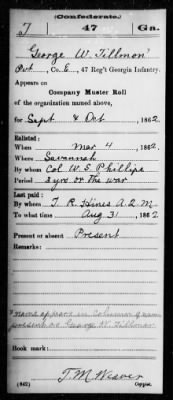 (Confederate.)
T 47 Ga.
George W. Tillmon*
Pvt, Co. E, 47 Reg't Georgia Infantry.
Appears on
Company Muster Roll
of the organization named above,
for Sept & Oct, 1862
Enlisted:
When Mar 4, 1862
Where Savannah
By whom Col W. S. Phillips
Period 3 yrs or the war
Last paid:
By whom T. R. Hines A. Q. M.
To what time Aug 31, 1862
Present or absent Present
Remarks:
* name appears in column of names
present as George W. Tillman
Book mark:
T. M. Weaver
(642) Copyist.